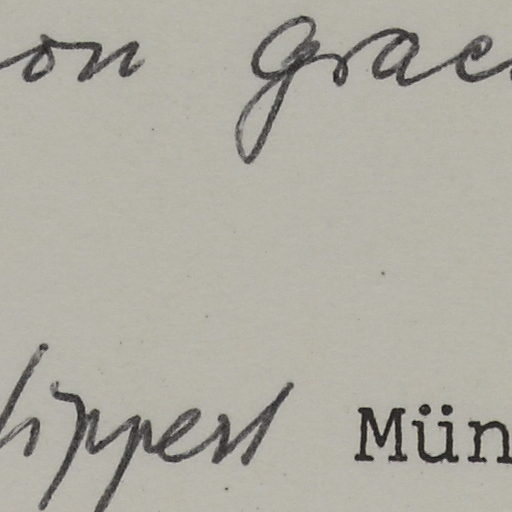 on Grae
lippert Mün